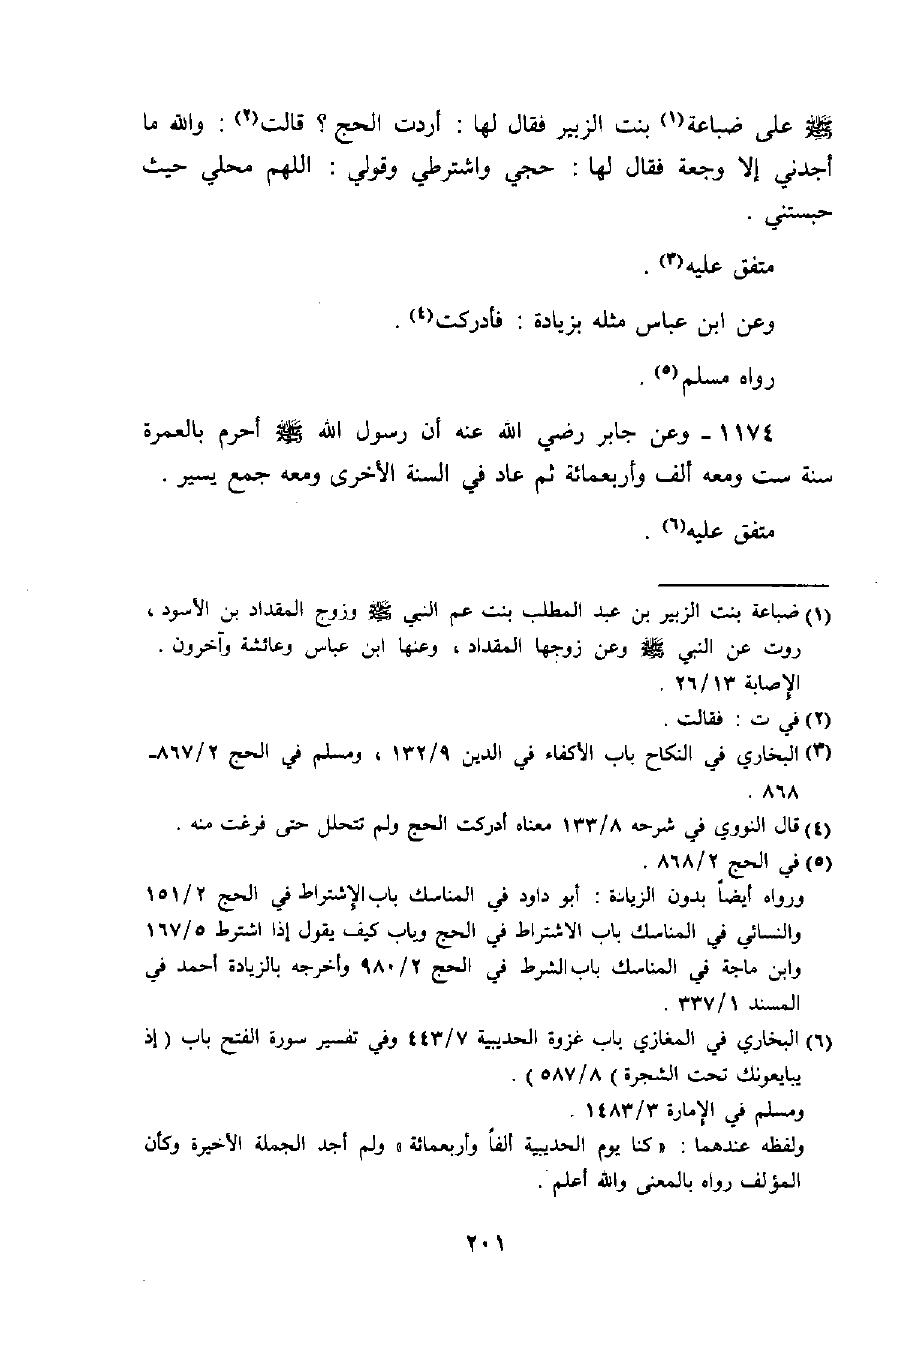 ﷺ على ضباعة(١) بنت الزبير فقال لها : أردت الحج ؟ قالت(٢) : والله ما
أجدني إلا وجعة فقال لها : حجي واشترطي وقولي : اللهم محلي حيث
حبستني .
متفق عليه(٣) .
وعن ابن عباس مثله بزيادة : فأدركت(٤) .
رواه مسلم(٥) .
١١٧٤ - وعن جابر رضي الله عنه أن رسول الله ﷺ أحرم بالعمرة
سنة ست ومعه ألف وأربعمائة ثم عاد في السنة الأخرى ومعه جمع يسير .
متفق عليه(٦) .
(١) ضباعة بنت الزبير بن عبد المطلب بنت عم النبي ﷺ وزوج المقداد بن الأسود ،
روت عن النبي ﷺ وعن زوجها المقداد ، وعنها ابن عباس وعائشة وآخرون .
الإصابة ٢٦/١٣ .
(٢) في ت : فقالت .
(٣) البخاري في النكاح باب الأكفاء في الدين ١٣٢/٩ ، ومسلم في الحج ٨٦٧/٢-
٨٦٨ .
(٤) قال النووي في شرحه ١٣٣/٨ معناه أدركت الحج ولم تتحلل حتى فرغت منه .
(٥) في الحج ٨٦٨/٢ .
ورواه أيضاً بدون الزيادة : أبو داود في المناسك باب الإشتراط في الحج ١٥١/٢
والنسائي في المناسك باب الاشتراط في الحج وباب كيف يقول إذا اشترط ١٦٧/٥
وابن ماجة في المناسك باب الشرط في الحج ٩٨٠/٢ وأخرجه بالزيادة أحمد في
المسند ٣٣٧/١ .
(٦) البخاري في المغازي باب غزوة الحديبية ٤٤٣/٧ وفي تفسير سورة الفتح باب ( إذ
يبايعونك تحت الشجرة ) ٥٨٧/٨ ) .
ومسلم في الإمارة ١٤٨٣/٣ .
ولفظه عندهما : « كنا يوم الحديبية ألفاً وأربعمائة » ولم أجد الجملة الأخيرة وكأن
المؤلف رواه بالمعنى والله أعلم .
٢٠١